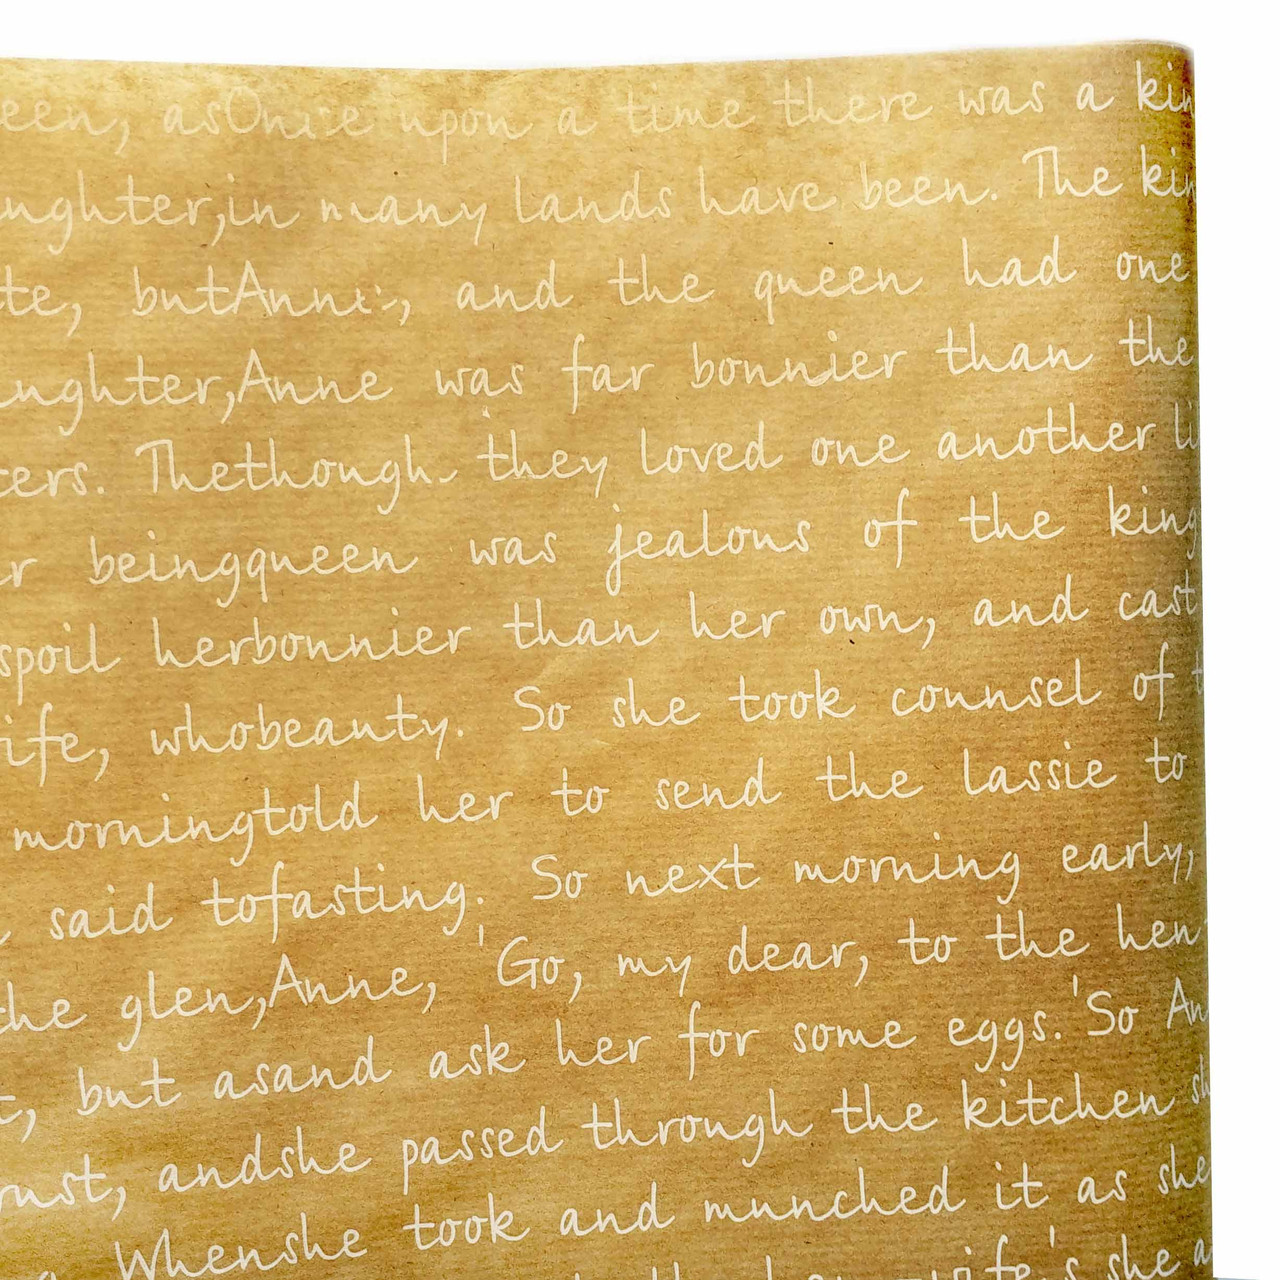 een, asOnce upon a time there was a kin
ughter,in many lands have been. The kin
te, butAnne, and the queen had one
aughter,Anne was far bonnier than the
ters. Thethough they loved one another li
r beingqueen was jealous of the king
spoil herbonnier than her own, and cast
ife, whobeauty. So she took counsel of t
morningtold her to send the lassie to
said tofasting. So next morning early,
the glen,Anne, 'Go, my dear, to the hen
t, but asand ask her for some eggs.'So An
rust, andshe passed through the kitchen sh
Whenshe took and munched it as she
wife's she a